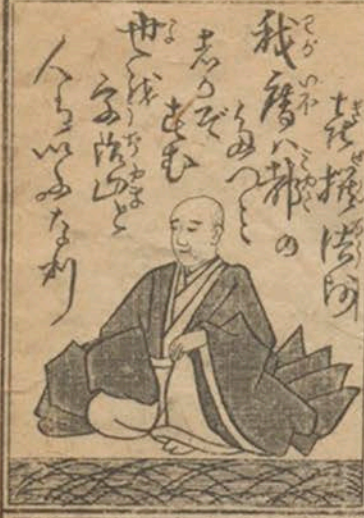 喜撰法師
我庵ハ都の
たつミ
志かぞ
すむ
世を
宇治山と
人はいふなり